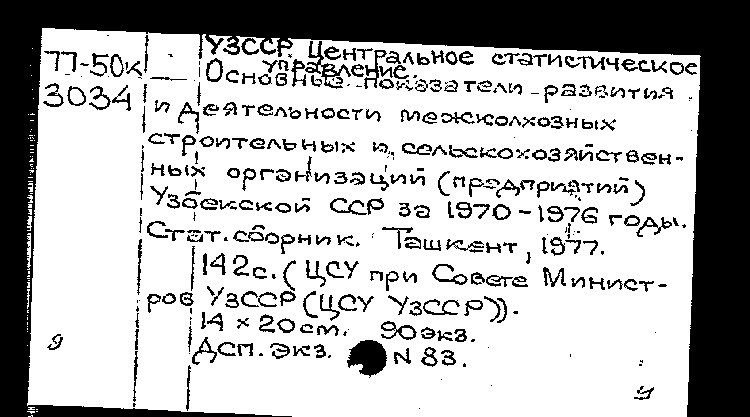 77-50к
3034
УЗССР. Центральное статистическое
управление.
Основные показатели развития
и деятельности межколхозных
строительных и сельскохозяйствен-
ных организаций (предприятий)
Узбекской ССР за 1970-1976 годы.
Стат. сборник. Ташкент, 1977.
142с. (ЦСУ при Совете Минист-
ров УЗССР (ЦСУ УЗССР)).
14 × 20см. 90экз.
ДСП. экз. N 83.